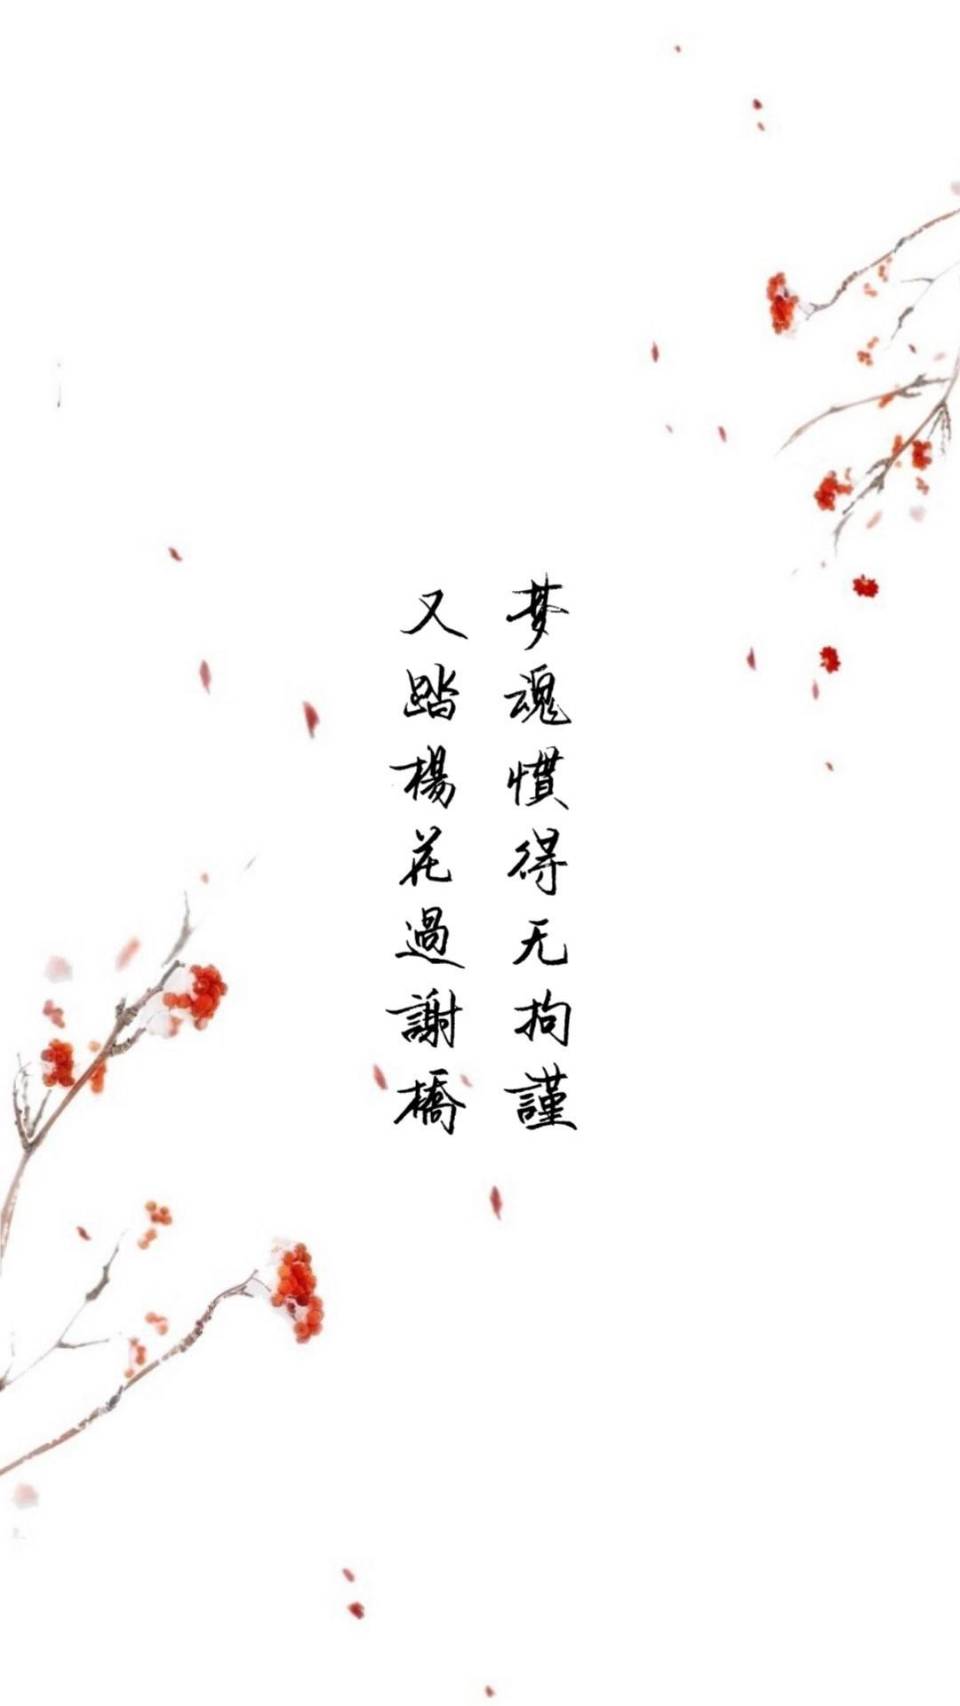 梦魂慣得无拘謹
又踏楊花過謝橋